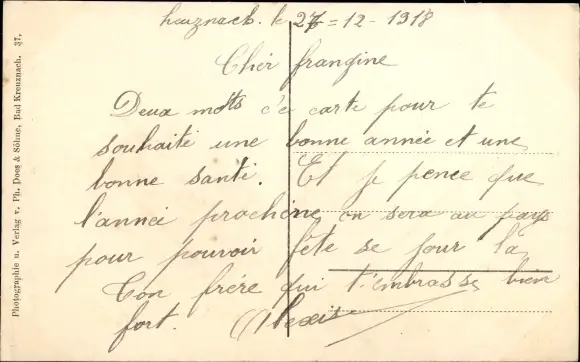 kreuznach. le 27=12-1918
Cher frangine
Deux mots c'e carte pour te
souhaité une bonne année et une
bonne santé. Et je pence que
l'année prochéne on sera au pays
pour pouvoir fête se jour la
Ton frére qui t'embrasse bien
fort. Alexis
Photographie u. Verlag v. Ph. Doos & Söhne, Bad Kreuznach. 37.